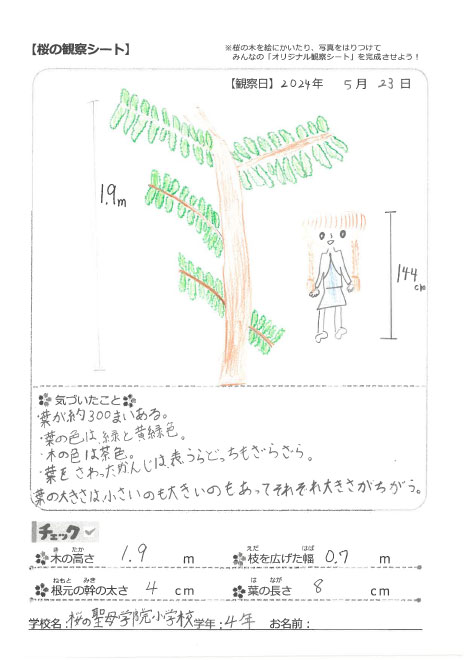 【桜の観察シート】
※桜の木を絵にかいたり、写真をはりつけて
みんなの「オリジナル観察シート」を完成させよう！
【観察日】2024年 5月 23日
1.9m
144cm
気づいたこと
・葉が約300まいある。
・葉の色は、緑と黄緑色。
・木の色は茶色。
・葉をさわったかんじは、表うらどっちもざらざら。
葉の大きさは、小さいのも大きいのもあってそれぞれ大きさがちがう。
チェック
木の高さ 1.9 m
きたか
枝を広げた幅 0.7 m
えだ はば
根元の幹の太さ 4 cm
ねもと みき
葉の長さ 8 cm
は なが
学校名：桜の聖母学院小学校 学年：4年 お名前：